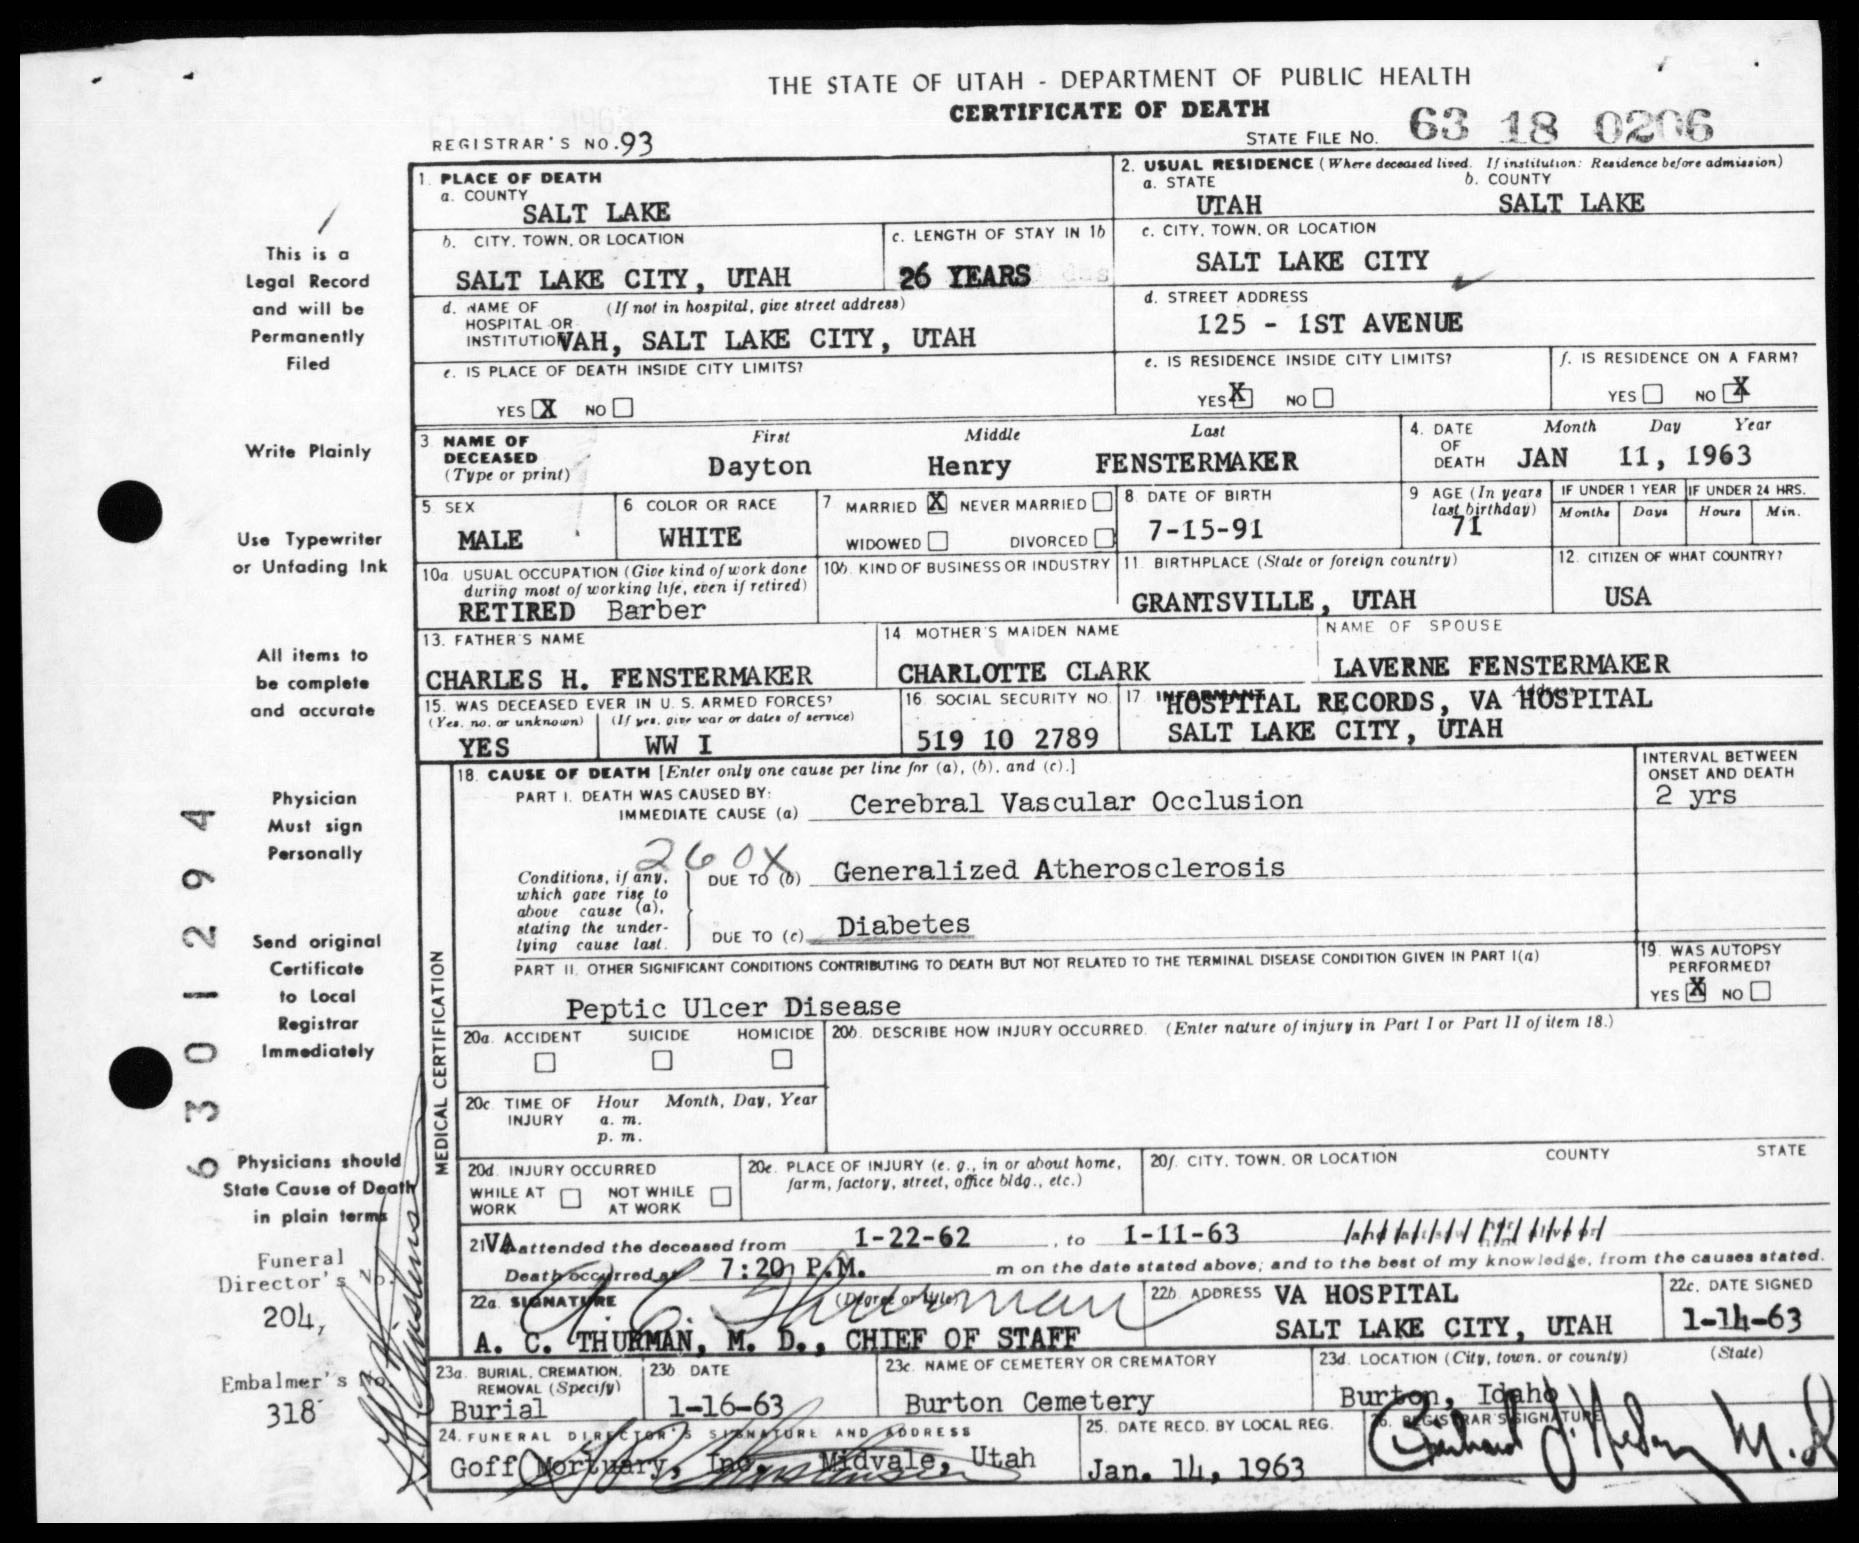 THE STATE OF UTAH - DEPARTMENT OF PUBLIC HEALTH
CERTIFICATE OF DEATH
REGISTRAR'S NO. 93
STATE FILE NO. 63 18 0206
1. PLACE OF DEATH
a. COUNTY
SALT LAKE
2. USUAL RESIDENCE (Where deceased lived. If institution: Residence before admission)
a. STATE
UTAH
b. COUNTY
SALT LAKE
b. CITY, TOWN, OR LOCATION
SALT LAKE CITY, UTAH
c. LENGTH OF STAY IN 1b
26 YEARS
c. CITY, TOWN, OR LOCATION
SALT LAKE CITY
d. NAME OF (If not in hospital, give street address)
HOSPITAL OR
INSTITUTION VAH, SALT LAKE CITY, UTAH
d. STREET ADDRESS
125 - 1ST AVENUE
e. IS PLACE OF DEATH INSIDE CITY LIMITS?
YES X NO
e. IS RESIDENCE INSIDE CITY LIMITS?
YES X NO
f. IS RESIDENCE ON A FARM?
YES NO X
3 NAME OF DECEASED
(Type or print)
First Middle Last
Dayton Henry FENSTERMAKER
4. DATE OF DEATH
Month Day Year
JAN 11, 1963
5. SEX
MALE
6 COLOR OR RACE
WHITE
7 MARRIED X NEVER MARRIED
WIDOWED DIVORCED
8 DATE OF BIRTH
7-15-91
9 AGE (In years last birthday)
71
IF UNDER 1 YEAR
Months Days
IF UNDER 24 HRS.
Hours Min.
10a. USUAL OCCUPATION (Give kind of work done
during most of working life, even if retired)
RETIRED Barber
10b. KIND OF BUSINESS OR INDUSTRY
11 BIRTHPLACE (State or foreign country)
GRANTSVILLE, UTAH
12. CITIZEN OF WHAT COUNTRY?
USA
13. FATHER'S NAME
CHARLES H. FENSTERMAKER
14 MOTHER'S MAIDEN NAME
CHARLOTTE CLARK
NAME OF SPOUSE
LAVERNE FENSTERMAKER
15. WAS DECEASED EVER IN U. S. ARMED FORCES?
(Yes, no, or unknown) (If yes, give war or dates of service)
YES WW I
16 SOCIAL SECURITY NO.
519 10 2789
17 INFORMANT Address
HOSPITAL RECORDS, VA HOSPITAL
SALT LAKE CITY, UTAH
MEDICAL CERTIFICATION
18. CAUSE OF DEATH [Enter only one cause per line for (a), (b), and (c).]
INTERVAL BETWEEN
ONSET AND DEATH
PART I. DEATH WAS CAUSED BY:
IMMEDIATE CAUSE (a) Cerebral Vascular Occlusion
2 yrs
260X
Conditions, if any,
which gave rise to
above cause (a),
stating the under-
lying cause last.
DUE TO (b) Generalized Atherosclerosis
DUE TO (c) Diabetes
PART II. OTHER SIGNIFICANT CONDITIONS CONTRIBUTING TO DEATH BUT NOT RELATED TO THE TERMINAL DISEASE CONDITION GIVEN IN PART I(a)
Peptic Ulcer Disease
19. WAS AUTOPSY
PERFORMED?
YES X NO
20a. ACCIDENT SUICIDE HOMICIDE
20b. DESCRIBE HOW INJURY OCCURRED. (Enter nature of injury in Part I or Part II of item 18.)
20c. TIME OF INJURY
Hour Month, Day, Year
a. m.
p. m.
20d. INJURY OCCURRED
WHILE AT WORK NOT WHILE AT WORK
20e. PLACE OF INJURY (e. g., in or about home,
farm, factory, street, office bldg., etc.)
20f. CITY, TOWN, OR LOCATION COUNTY STATE
21 VA attended the deceased from 1-22-62, to 1-11-63
Death occurred at 7:20 P.M. m on the date stated above; and to the best of my knowledge, from the causes stated.
22a. SIGNATURE (Degree or title)
A. C. Thurman
A. C. THURMAN, M. D., CHIEF OF STAFF
22b. ADDRESS VA HOSPITAL
SALT LAKE CITY, UTAH
22c. DATE SIGNED
1-14-63
23a. BURIAL, CREMATION,
REMOVAL (Specify)
Burial
23b. DATE
1-16-63
23c. NAME OF CEMETERY OR CREMATORY
Burton Cemetery
23d. LOCATION (City, town, or county) (State)
Burton, Idaho
24. FUNERAL DIRECTOR'S SIGNATURE AND ADDRESS
Goff Mortuary, Inc. Midvale, Utah
25. DATE RECD. BY LOCAL REG.
Jan. 14, 1963
26. REGISTRAR'S SIGNATURE
This is a
Legal Record
and will be
Permanently
Filed
Write Plainly
Use Typewriter
or Unfading Ink
All items to
be complete
and accurate
Physician
Must sign
Personally
Send original
Certificate
to Local
Registrar
Immediately
Physicians should
State Cause of Death
in plain terms
Funeral
Director's No.
204,
Embalmer's No.
318
6301294